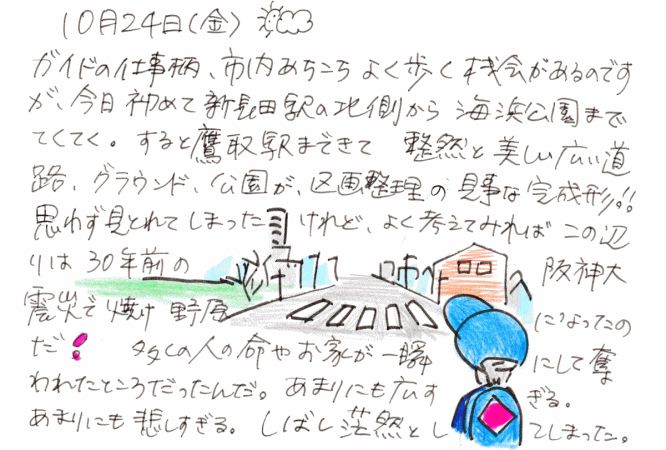 10月24日(金)
ガイドの仕事柄、市内あちこちよく歩く機会があるのです
が、今日初めて新長田駅の北側から海浜公園まで
てくてく。すると鷹取駅まできて 整然と美しい広い道
路、グラウンド、公園が、区画整理の見事な完成形!!
思わず見とれてしまったけれど、よく考えてみればこの辺
りは30年前の 阪神大
震災で焼け野原 になったの
だ! 多くの人の命やお家が一瞬 にして奪
われたところだったんだ。あまりにも広す ぎる。
あまりにも悲しすぎる。しばし茫然とし てしまった。